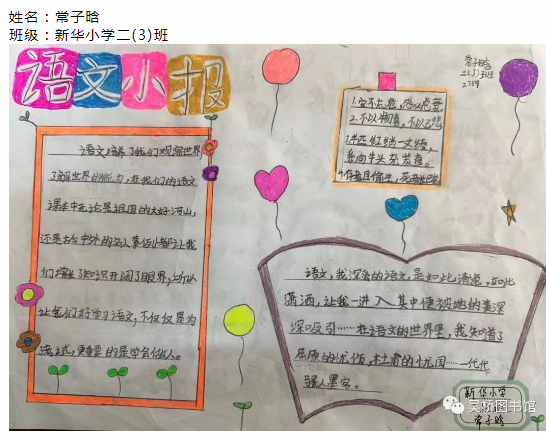 姓名：常子晗
班级：新华小学二(3)班
语文小报
常子晗
二(3)班
语文,培养了我们观察世界
了解世界的能力,在我们的语文
课本中无论是祖国的大好河山,
还是古今中外的名人都让我
们增长了知识开阔了眼界,所以
让我们好好学习语文,不仅仅是为
考试,更重要的是学会做人。
1.安不忘危,盛必虑衰
2.不以物喜,不以己悲
3.半匹红绡一丈绫,
系向牛头充炭直。
4.存者且偷生,死者长已矣
语文,我深爱的语文,是如此清逸,如此
潇洒,让我一进入其中便被她的深
深吸引……在语文的世界里,我知道了
屈原的忧伤,杜甫的忧国……一代代
骚人墨客。
新华小学
常子晗
吴桥图书馆